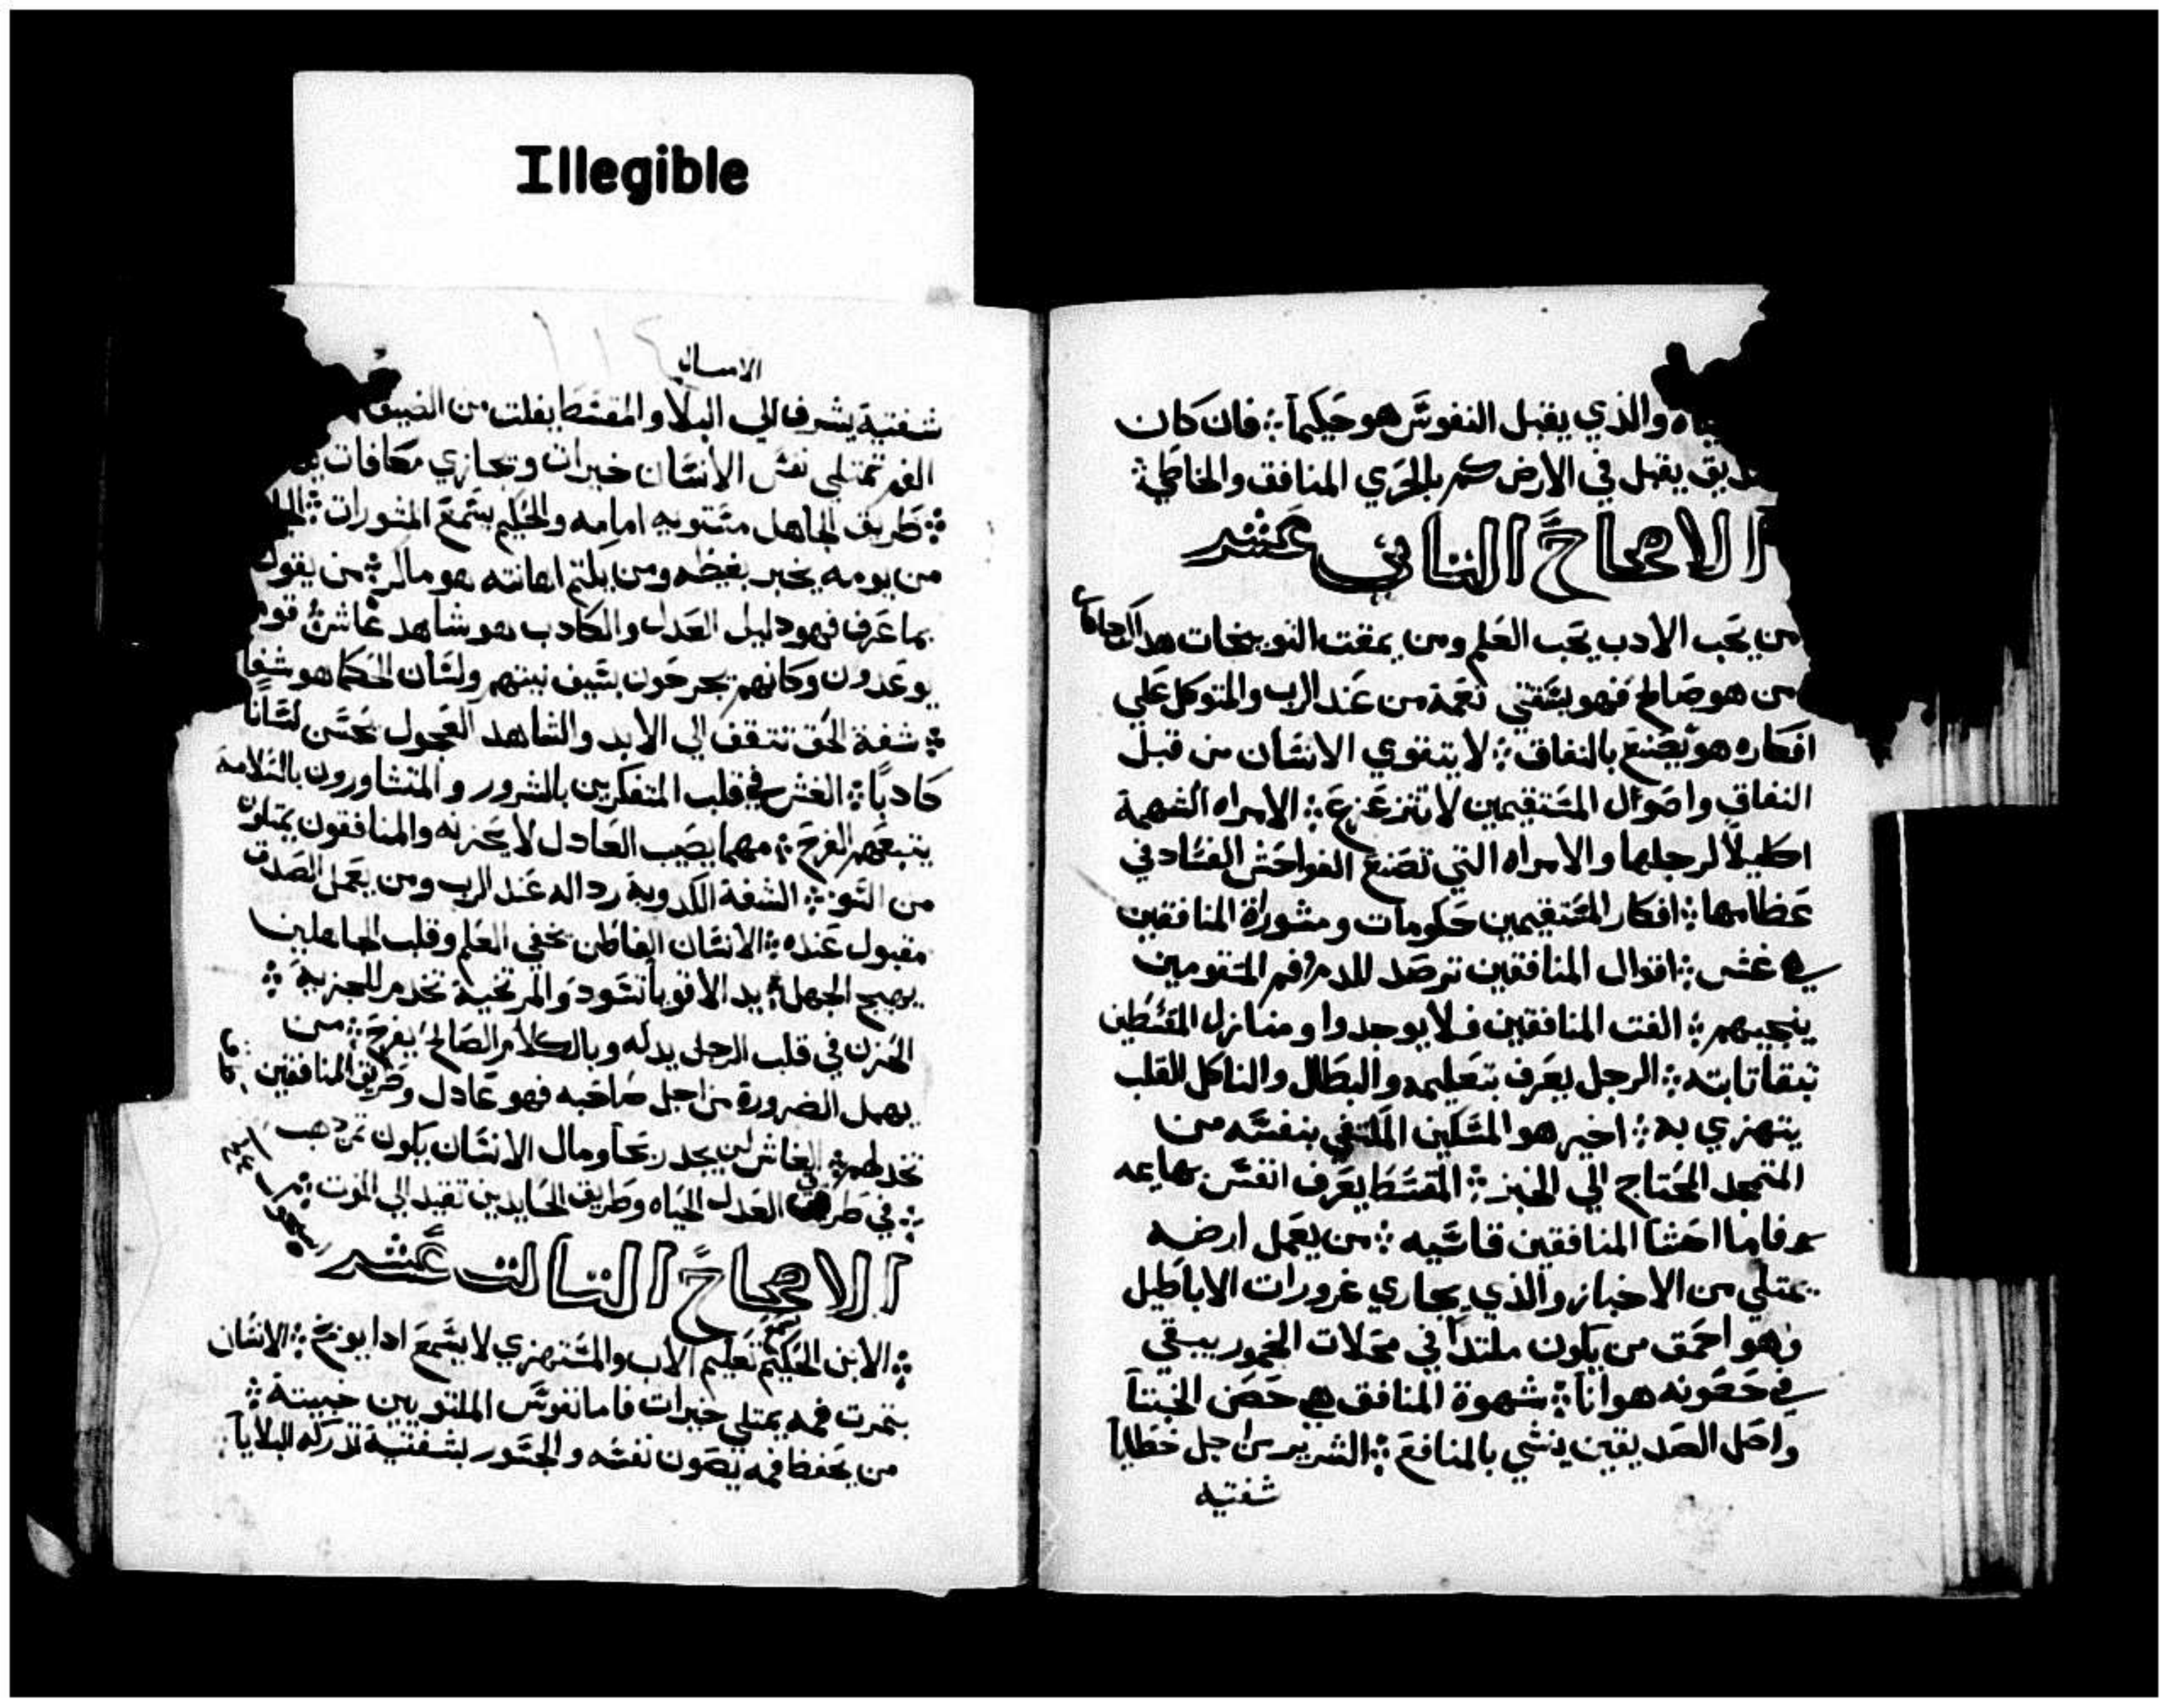 Illegible
والذي يقبل النفوس هو حكيماً ⁘ فان كان
يقبل في الارض كم بالحري المنافق والخاطي ⁘
الاصحاح التاني عشر
من يحب الادب يحب العلم ومن يمقت التوبيخات هو
من هو صالح فهو يستقني نعمة من عند الرب والمتوكل علي
افكاره هو يصنع بالنفاق ⁘ لا يتقوي الانسان من قبل
النفاق واصول المستقيمين لا تتزعزع ⁘ الامراه الشهمة
اكليلاً لرجلها والامراه التي تصنع الفواحش الفساد في
عظامها ⁘ افكار المستقيمين حكومات ومشوراة المنافقين
في غش ⁘ اقوال المنافقين ترصد للدم وفم المتقومين
ينجيهم ⁘ الفت المنافقين فلا يوجدوا ومنازل المقسطين
تبقا تابته ⁘ الرجل يعرف بتعليمه والبطال والناكل القلب
يتهزي به ⁘ اخير هو المسكين المكتفي بنفسه من
المتمجد المحتاج الي الخبز ⁘ المقسط يعرف انفس بهايمه
فاما احشا المنافقين قاسيه ⁘ من يعمل ارضه
يمتلي من الاخباز والذي يجاري غرورات الاباطيل
وهو احمق من يكون ملتداً في محلات الخمور يبقي
في حصونه هواناً ⁘ شهوة المنافق هي حصن الخبتا
واصل الصديقين ينشي بالمنافع ⁘ الشرير من اجل خطايا
شفتيه
الامسال
شفتية يشرف الي البلا والمقسط يفلت من الضيق
الفم تمتلي نفس الانسان خيرات وتجازي مكافات
⁘ طريق الجاهل مستويه امامه والحكيم يسمع المشورات ⁘
من يومه يخبر بغيظه ومن يكتم اهانته هو ماكر ⁘ من يقول
بما عرف فهو دليل العدل والكادب هو شاهد غاش ⁘ قوم
يوعدون وكانهم يجرحون بسيف نيتهم ولسان الحكما هو شفا
⁘ شفة الحق تتقف الي الابد والشاهد العجول يحسن لساناً
كادباً ⁘ الغش في قلب المتفكرين بالشرور والمتشاورون بالسلامة
يتبعهم الفرح ⁘ مهما يصيب العادل لا يحزنه والمنافقون يمتلون
من السو ⁘ الشفة الكدوبة رداله عند الرب ومن يعمل الصدق
مقبول عنده ⁘ الانسان الفاطن يخفي العلم وقلب الجاهلين
يهيج الجهل ⁘ يد الاقويا تسود والمرتخية تخدم للجزية ⁘
الحزن في قلب الرجل يدله وبالكلام الصالح يفرح ⁘ من
يهمل الضرورة من اجل صاحبه فهو عادل وطريق المنافقين
تخدلهم ⁘ الغاش لن يجد ربحاً ومال الانسان يكون تمن دهب
⁘ في طريق العدل الحياه وطريق الحايدين تفيد الي الموت ⁘
الاصحاح التالت عشر
⁘ الابن الحكيم تعليم الاب والمستهزي لا يسمع ادا يوبخ ⁘ الانسان
بتمرت فمه يمتلي خيرات فاما نفوس الملتويين خبيتة ⁘
من يحفظ فمه يصون نفسه والجسور بشفتية تدركه البلايا